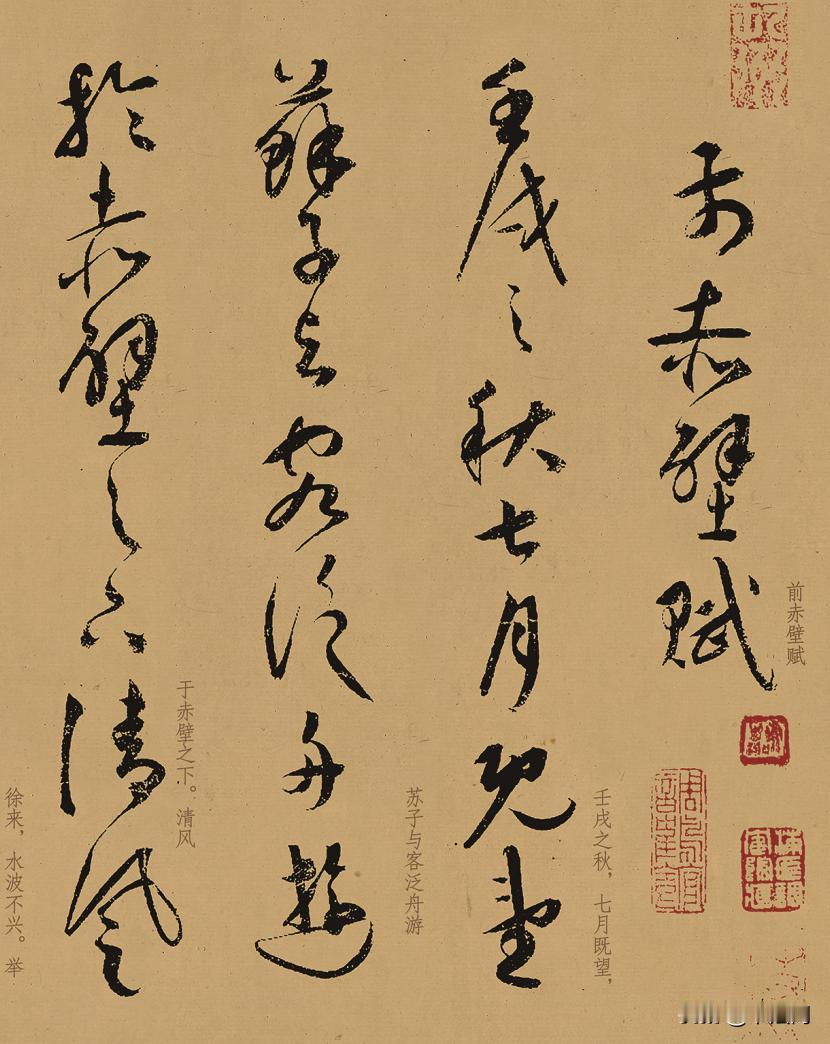 前赤壁賦
前赤壁赋
壬戌之秋七月既望
壬戌之秋，七月既望，
蘇子與客泛舟遊
苏子与客泛舟游
於赤壁之下清風
于赤壁之下。清风
徐来，水波不兴。举